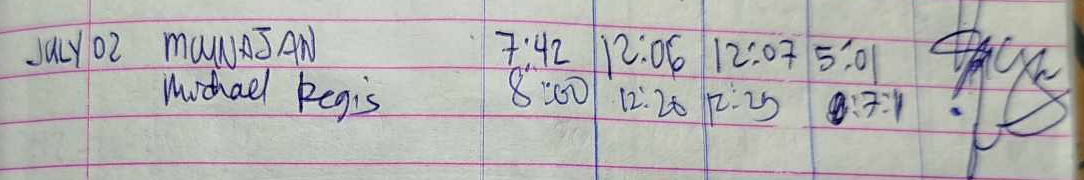 JULY 02 MUNAJAN 7:42 12:06 12:07 5:01
Michael Regis 8:00 12:20 12:25